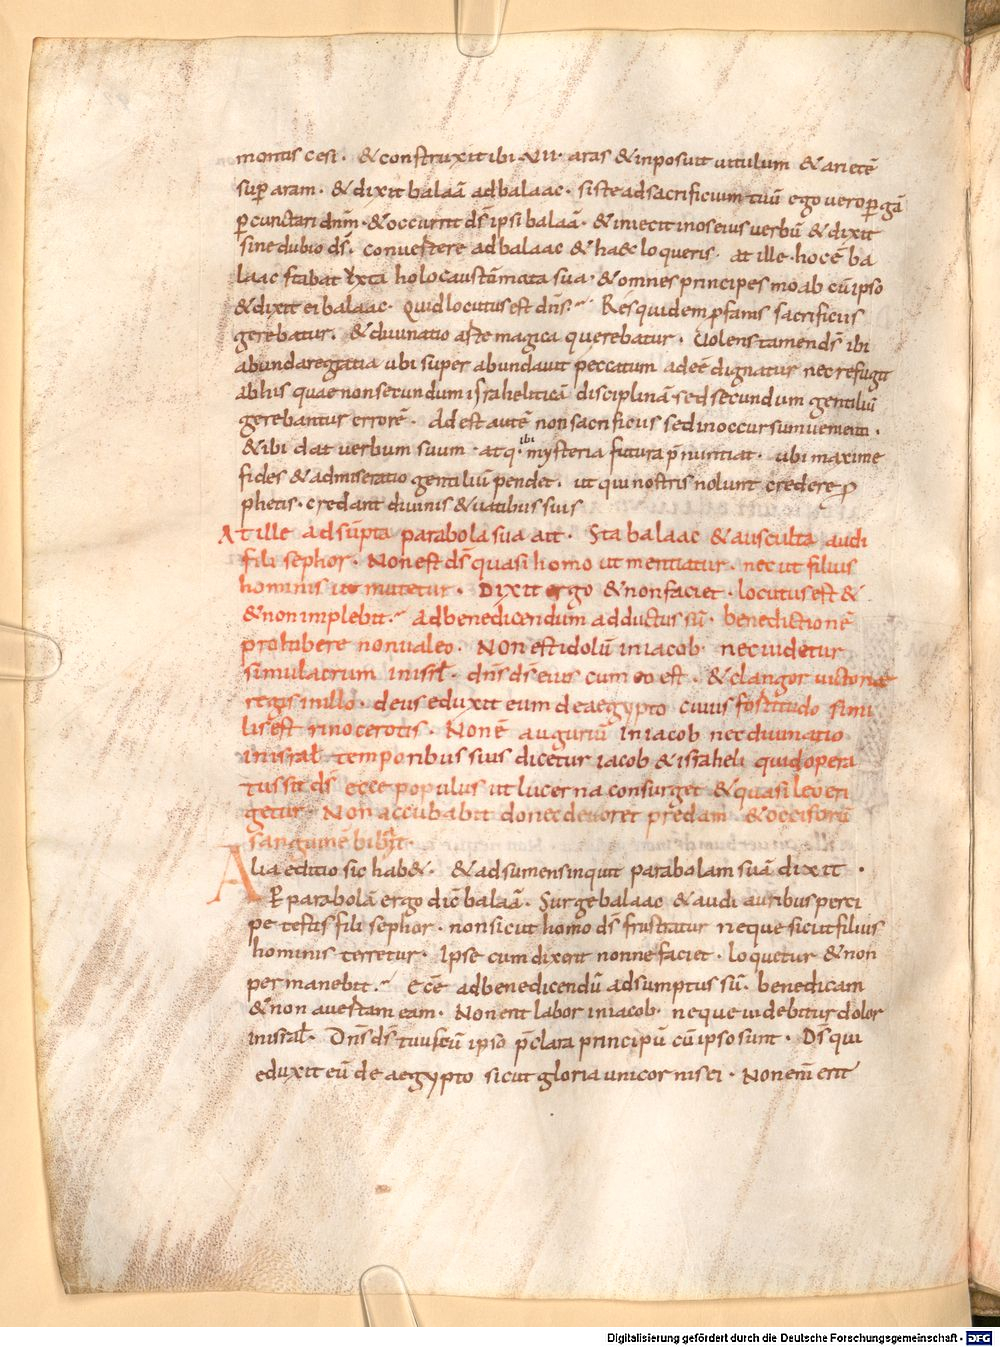 montis cest · & construxit ibi · VII · aras & inposuit uitulum & arietē
sup aram · & dixit balaā ad balaac · siste ad sacrificium tuū ego uero pgā
pcunctari dnm̄ · & occurrit dī ipsi balaā · & iniecit in os eius uerbū & dixit
sine dubio dī · conuertere ad balaac & haec loqueris · at ille · hoc ē ba
laac stabat ixta holocaustomata sua · & omnes principes moab cū ipso
& dixit ei balaac · Quid locutus est dn̄s · Res quidem pfanis sacrificiis
gerebatur · & diuinatio arte magica querebatur · Uolens tamen dī ibi
abundare gratia ubi super abundauit peccatum adeē dignatur nec refugit
ab his quae non secundum israheliticā disciplinā sed secundum gentiliū
gerebantur errorē · Adest autē non sacrificiis sed in occursum uenienti ·
& ibi dat uerbum suum · atq · ibi mysteria futura pnuntiat · ubi maxime
fides & admiratio gentiliū pendet · ut qui nostris nolunt credere p
phetis · credant diuinis & uatibus suis
At ille adsūpta parabola sua ait · Sta balaac & ausculta audi
fili sephor · Non est dī quasi homo ut mentiatur · nec ut filius
hominis ut mutetur · Dixit ergo & non faciet · locutus est &
& non implebit · Ad benedicendum adductus sū · benedictionē
prohibere non ualeo · Non est idolū in iacob · nec uidetur
simulacrum in isrl̄ · dn̄s dī eius cum eo est · & clangor uictoriae
regis in illo · deus eduxit eum de aegypto cuius fortitudo simi
lis est rinocerotis · Non ē auguriū in iacob nec diuinatio
in isral̄ temporibus suis dicetur iacob & israheli quid opera
tus sit dī ecce populus ut lucerna consurget & quasi leo eri
getur · Non accubabit donec deuoret predam & occisorū
sanguinē bibat ·
Alia editio sic hab& · & adsumens inquit parabolam suā dixit ·
E parabolā ergo dic̄ balaā · Surge balaac & audi auribus perci
pe testis fili sephor · non sicut homo dī frustratur neque sicut filius
hominis terretur · Ipse cum dixerit nonne faciet · loquetur & non
permanebit · Ecē ad benedicendū adsumptus sū · benedicam
& non auertam eam · Non erit labor in iacob · neque uidebitur dolor
in isral̄ · Dn̄s dī tuus cū ipso pclara principū cū ipso sunt · Dī qui
eduxit eū de aegypto sicut gloria unicornis ei · Non enī erit
Digitalisierung gefördert durch die Deutsche Forschungsgemeinschaft · DFG